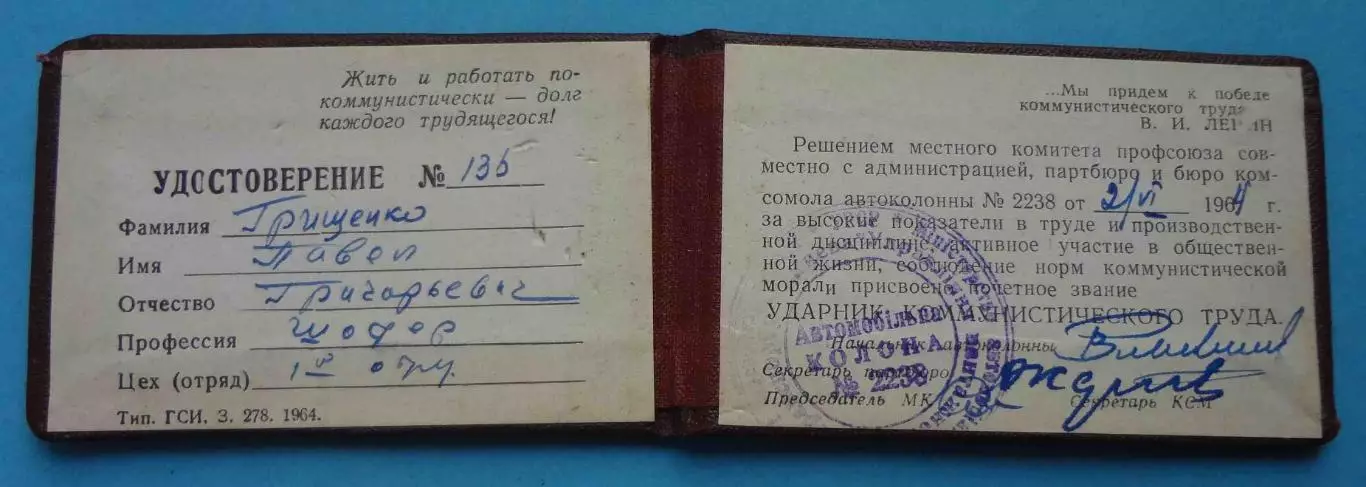 Жить и работать по-
коммунистически — долг
каждого трудящегося!
УДОСТОВЕРЕНИЕ № 135
Фамилия Грищенко
Имя Павел
Отчество Григорьевич
Профессия шофер
Цех (отряд) 1
Тип. ГСИ, З. 278. 1964.
...Мы придем к победе
коммунистического труда
В. И. ЛЕНИН
Решением местного комитета профсоюза сов-
местно с администрацией, партбюро и бюро ком-
сомола автоколонны № 2238 от 2/VI 1964 г.
за высокие показатели в труде и производствен-
ной дисциплине, активное участие в обществен-
ной жизни, соблюдение норм коммунистической
морали присвоено почетное звание
УДАРНИК КОММУНИСТИЧЕСКОГО ТРУДА.
Начальник автоколонны
Секретарь партбюро
Председатель МК Секретарь КСМ
АВТОМОБІЛЬНА
КОЛОНА
№ 2238